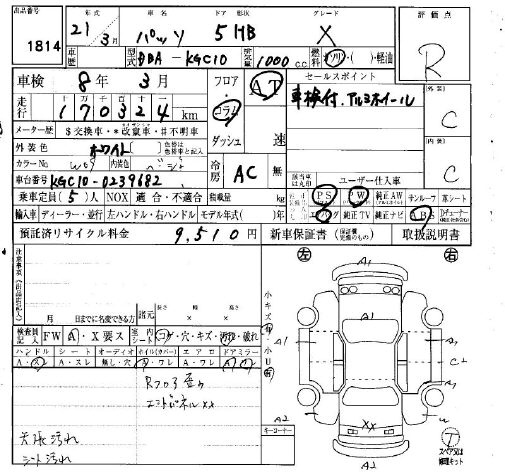 出品番号 1814
年式 21年 3月 車名 パッソ ドア 形状 5HB グレード X 評価点 R
車歴 型式 DBA-KGC10 排気量 1000 c.c. 燃料 ガソリン・( )・軽油
車検 8年 3月 フロア・コラム・ダッシュ AT 速 セールスポイント
車検付.アルミホイール
走行 170324 km 外装 C
メーター歴 $交換車・*改竄車・#不明車
外装色 ホワイト 色替は色替車と記入 内装 C
カラーNo. W09 内装色 ベージュ 冷房 AC 無 ユーザー仕入車
車台番号 KGC10-0239682
乗車定員(5)人 NOX 適合・不適合 積載量 kg PS PW 純正AW サンルーフ 革シート
輸入車 ディーラー・並行 左ハンドル・右ハンドル モデル年式( )年 エアバッグ 純正TV 純正ナビ ABS
預託済リサイクル料金 9,510円 新車保証書 取扱説明書
注意事項
左 右
月 日までに名変できる方 諸元 長さ 幅 高さ × ×
検査員記入 FW A・X要ス 室内シート コゲ・穴・キズ・汚れ・破れ
ハンドル シート オーディオ ホイル(カバー) エアロ ドアミラー
A・ス A・スレ 無し・穴 A・ワレ A・ワレ
小キズ 小凹
A1
A1
A1 A1
A2 C2
A1
XX
A2
キーコーナー
エンドパネルXX
天張汚れ
シート汚れ
T スペアタイヤ 修理キット